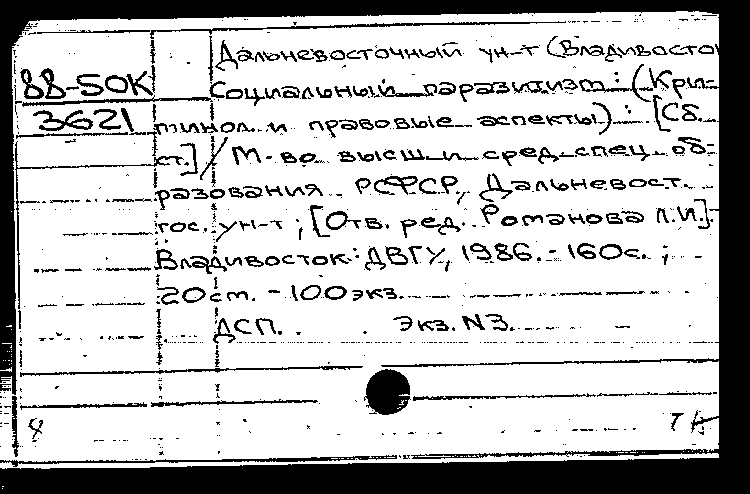 Дальневосточный ун-т (Владивосто
88-50К
Социальный паразитизм : (Кри-
3621
минол. и правовые аспекты) : [Сб.
ст.] / М-во высш. и сред. спец. об-
разования РСФСР, Дальневост.
гос. ун-т ; [Отв. ред. Романова Л.И.]. -
Владивосток : ДВГУ, 1986. - 160с. ;
20см. - 100экз.
ДСП. Экз. N3.